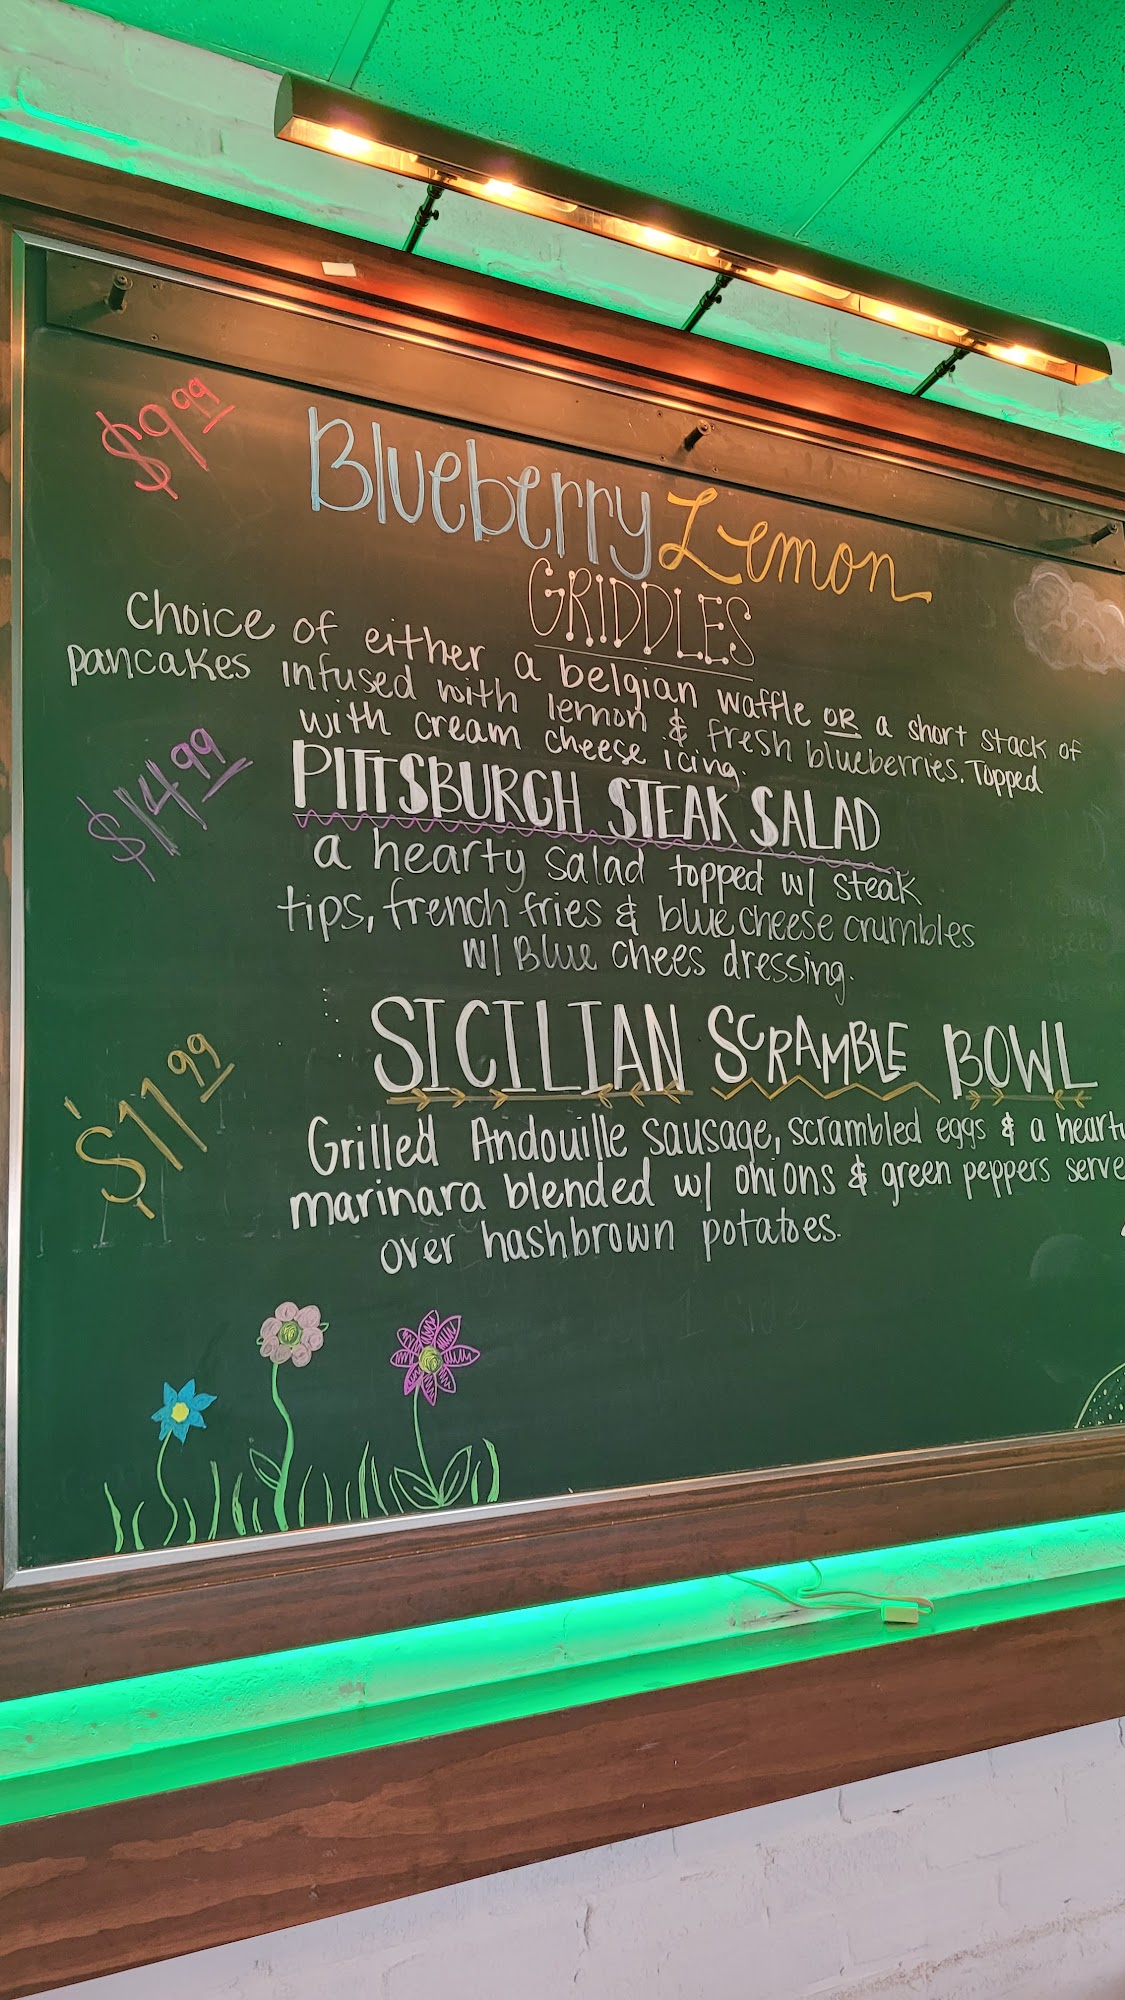 $9.99
Blueberry Lemon
GRIDDLES
Choice of either a belgian waffle OR a short stack of
pancakes infused with lemon & fresh blueberries. Topped
with cream cheese icing.
$14.99
PITTSBURGH STEAK SALAD
a hearty salad topped w/ steak
tips, french fries & blue cheese crumbles
w/ Blue chees dressing.
$11.99
SICILIAN SCRAMBLE BOWL
Grilled Andouille sausage, scrambled eggs & a heart
marinara blended w/ onions & green peppers serve
over hashbrown potatoes.